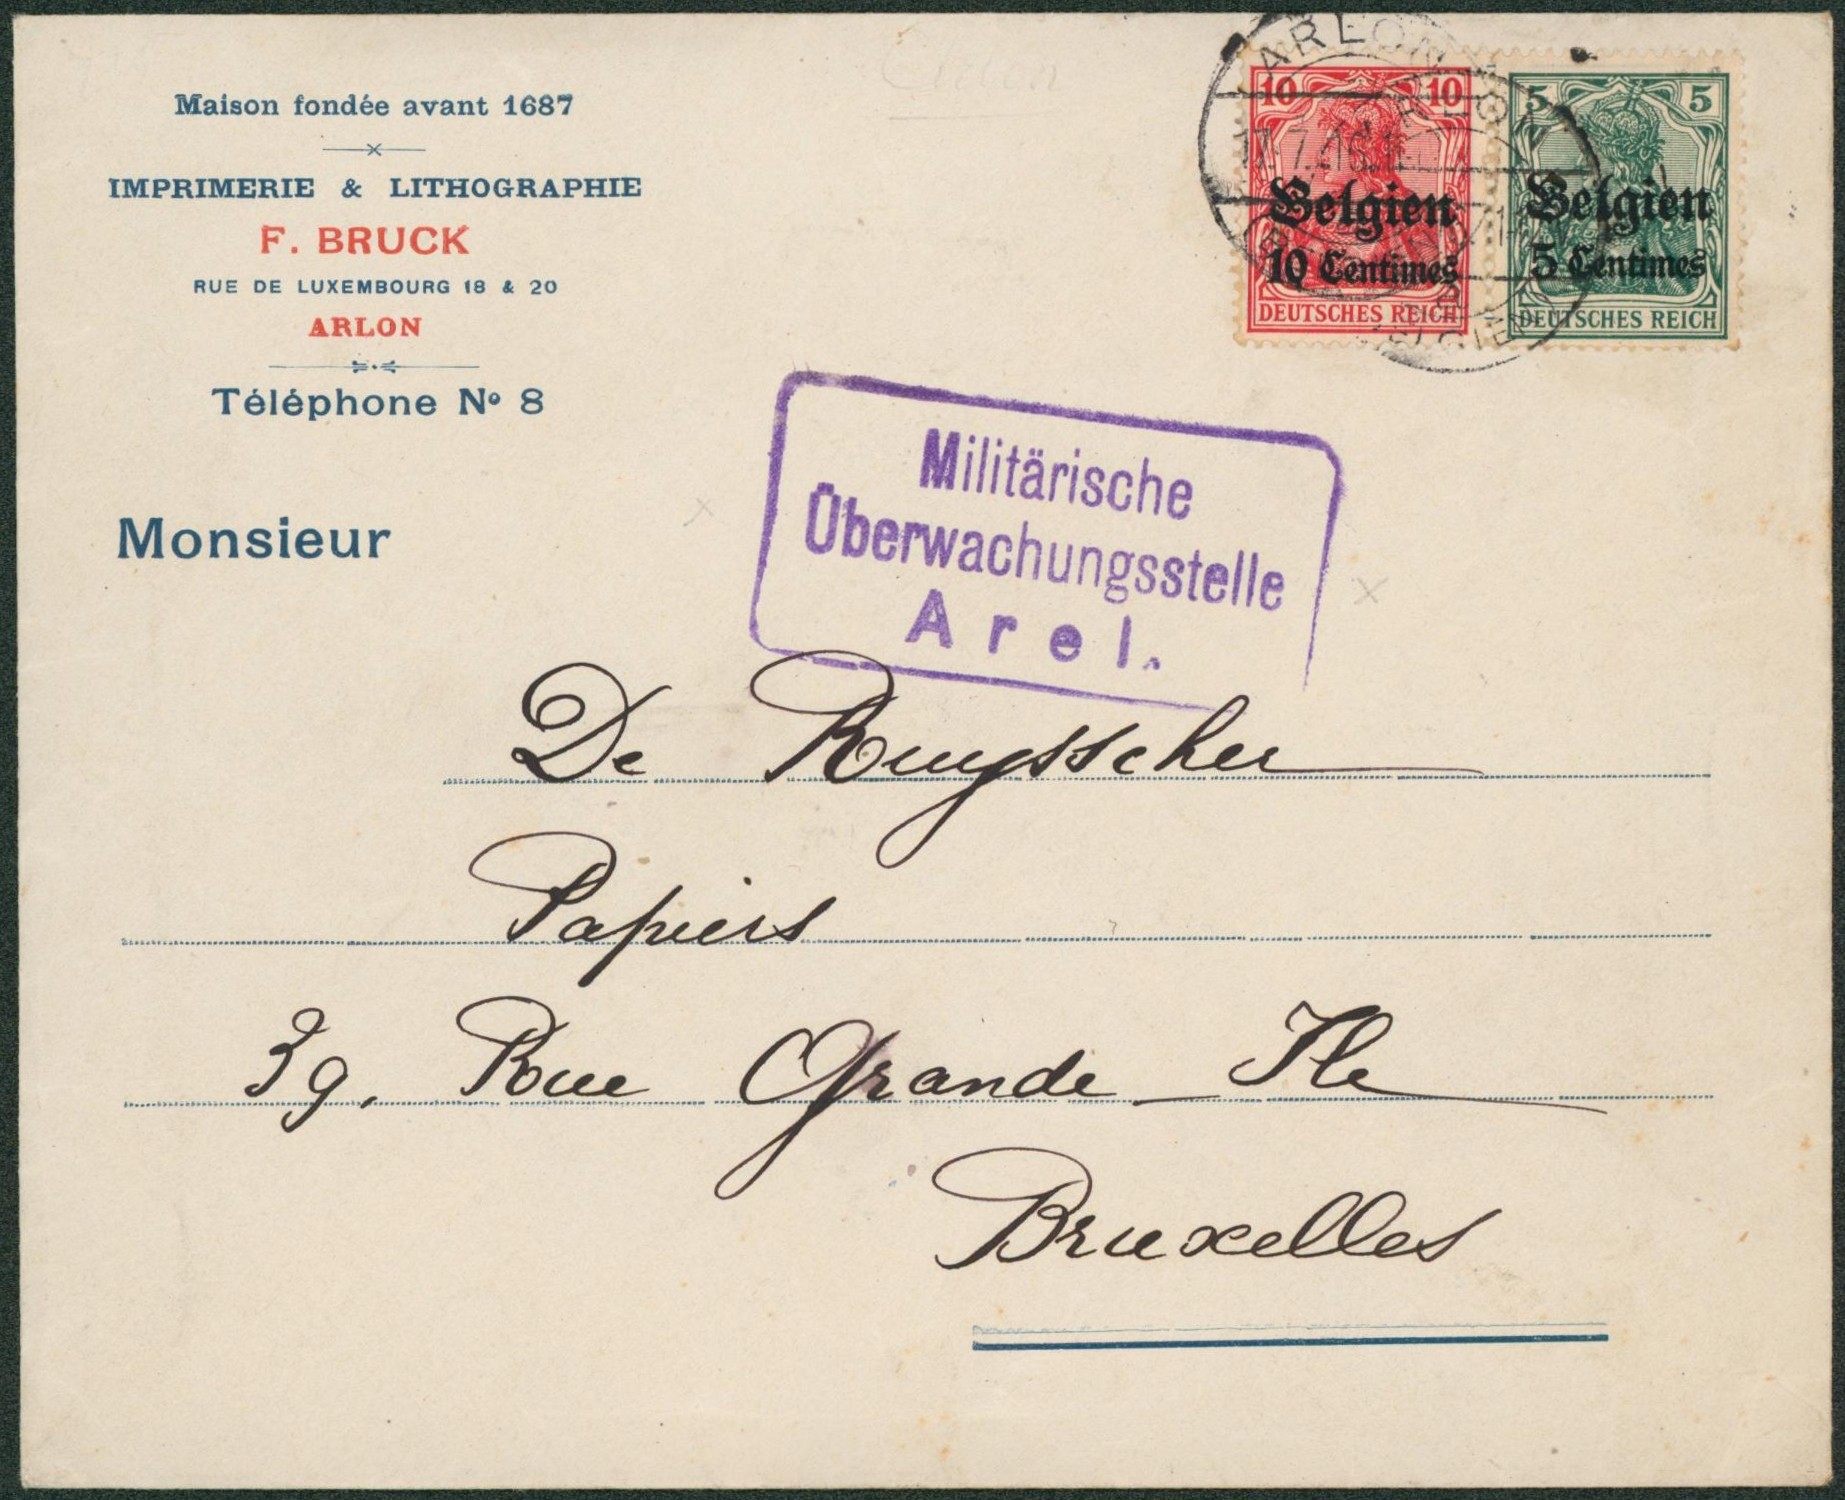 Maison fondée avant 1687
IMPRIMERIE & LITHOGRAPHIE
F. BRUCK
RUE DE LUXEMBOURG 18 & 20
ARLON
Téléphone Nº 8
Monsieur
10 10
Belgien
10 Centimes
DEUTSCHES REICH
5 5
Belgien
5 Centimes
DEUTSCHES REICH
ARLON
Militärische
Überwachungsstelle
Arel.
De Ruysscher
Papiers
39, Rue Grande Ile
Bruxelles